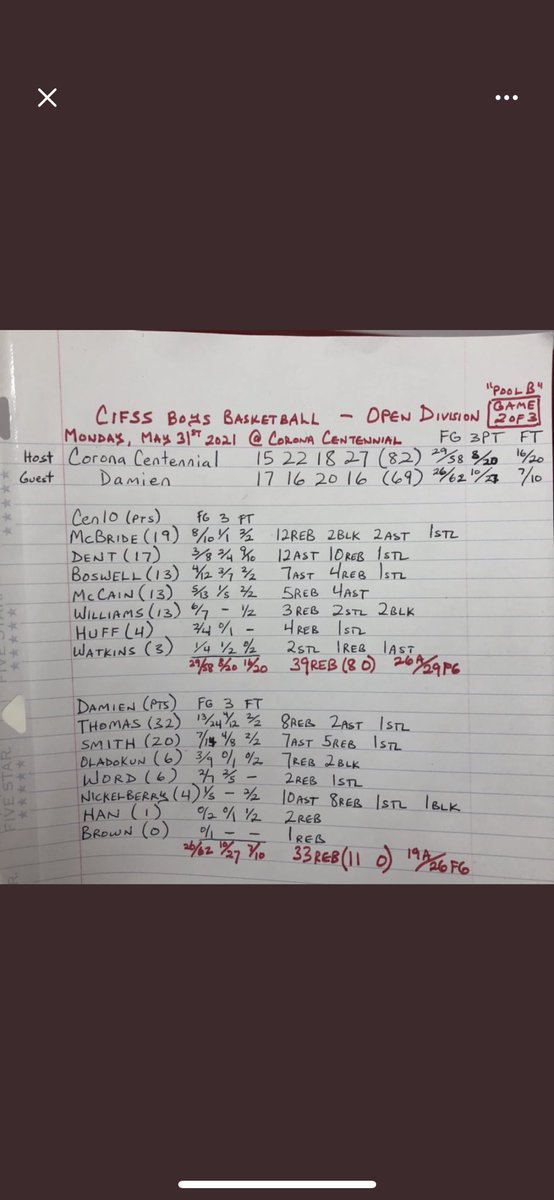 "POOL B"
CIFSS BOYS BASKETBALL - OPEN DIVISION GAME 2 OF 3
MONDAY, MAY 31ST 2021 @ CORONA CENTENNIAL FG 3PT FT
Host Corona Centennial 15 22 18 27 (82) 29/58 8/20 16/20
Guest Damien 17 16 20 16 (69) 26/62 10/27 7/10
Cen10 (PTS) FG 3 FT
MCBRIDE (19) 8/10 1/1 2/2 12REB 2BLK 2AST 1STL
DENT (17) 3/8 2/4 9/10 12AST 10REB 1STL
BOSWELL (13) 4/12 3/7 2/2 7AST 4REB 1STL
MCCAIN (13) 5/13 1/5 2/2 5REB 4AST
WILLIAMS (13) 6/7 - 1/2 3REB 2STL 2BLK
HUFF (4) 2/4 0/1 - 4REB 1STL
WATKINS (3) 1/4 1/2 0/2 2STL 1REB 1AST
29/58 8/20 16/20 39REB (8 O) 26A/29FG
DAMIEN (PTS) FG 3 FT
THOMAS (32) 13/24 4/12 2/2 8REB 2AST 1STL
SMITH (20) 7/14 4/8 2/2 7AST 5REB 1STL
OLADOKUN (6) 3/9 0/1 0/2 7REB 2BLK
WORD (6) 2/7 2/5 - 2REB 1STL
NICKELBERRY (4) 1/5 - 2/2 10AST 8REB 1STL 1BLK
HAN (1) 0/2 0/1 1/2 2REB
BROWN (0) 0/1 - - 1REB
26/62 10/27 7/10 33REB (11 O) 19A/26FG
FIVE STAR